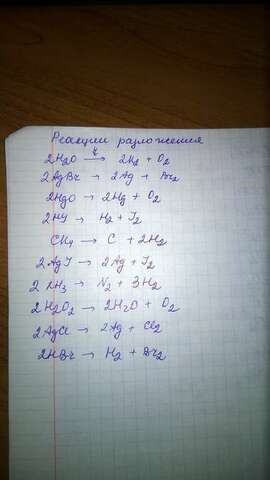 Реакции разложения
2H2O t→ 2H2 + O2
2AgBr → 2Ag + Br2
2HgO → 2Hg + O2
2HJ → H2 + J2
CH4 → C + 2H2
2AgJ → 2Ag + J2
2NH3 → N2 + 3H2
2H2O2 → 2H2O + O2
2AgCl → 2Ag + Cl2
2HBr → H2 + Br2